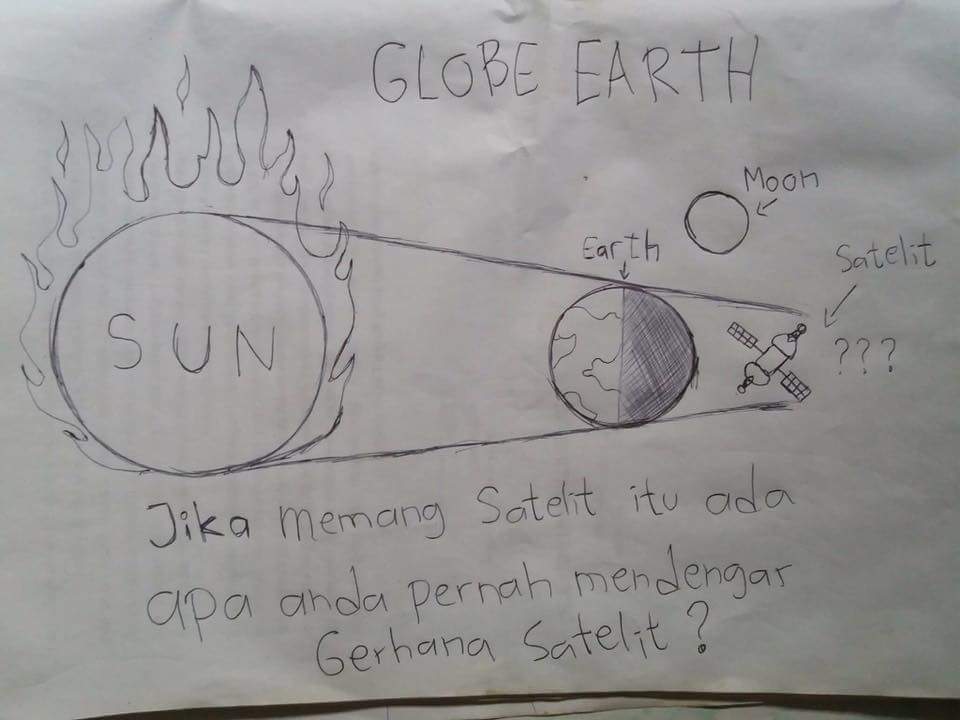 GLOBE EARTH
Moon
Earth
Satelit
SUN
???
Jika memang Satelit itu ada
apa anda pernah mendengar
Gerhana Satelit?